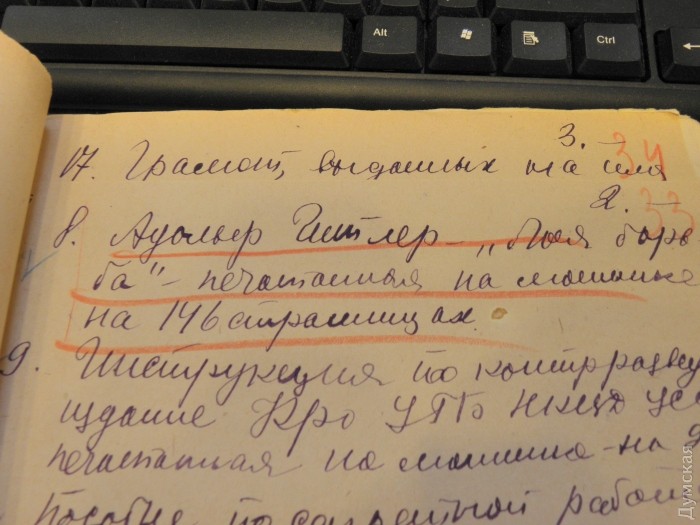 Alt
Ctrl
3.
34
17. Грамот, выданных на имя
2. —
33
8. Адольф Гитлер — „Моя борь
ба" — печатанная на машинке
на 146 страницах.
9. Инструкция по контрразвед
издание КРО УГБ НКВД УС
печатанная на машинке — на
Пособие по секретной работ
Думская